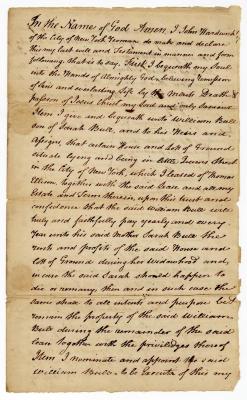 In the Name of God Amen, I John
of the City of New York Yeoman do make and declare
this my last will and Testament in manner and form
following, that is to say, First I bequeath my Soul
into the Hands of Almighty God & believing remission
of Sins and everlasting Life by the Merits Death &
passion of Jesus Christ my Lord and only Saviour
Item I give and bequeath unto William Bull
son of Sarah Bull, and to his Heirs and
Assigns that certain House and Lott of Ground
situate lying and being in little Queens Street
in the City of New York, which I leased of Thomas
Ellison together with the said Lease and all my
Estate and Term therein, upon this trust and
confidence that the said William Bull will
truly and faithfully pay yearly and every
Year unto his said Mother Sarah Bull the
rents and profits of the said House and
Lott of Ground during her Widowhood and,
in case the said Sarah should happen to
die or remarry, then and in such case the
same shall to all intents and purpose be &
remain the property of the said William
Bull during the remainder of the said
Lease together with the priviledges thereof
Item I nominate and appoint the said
William Bull to be Executor of this my